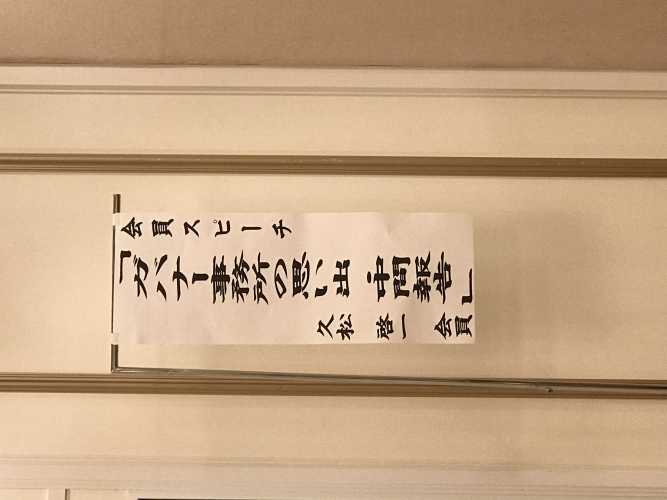 会員スピーチ
「ガバナー事務所の思い出 中間報告」
久松 啓一 会員